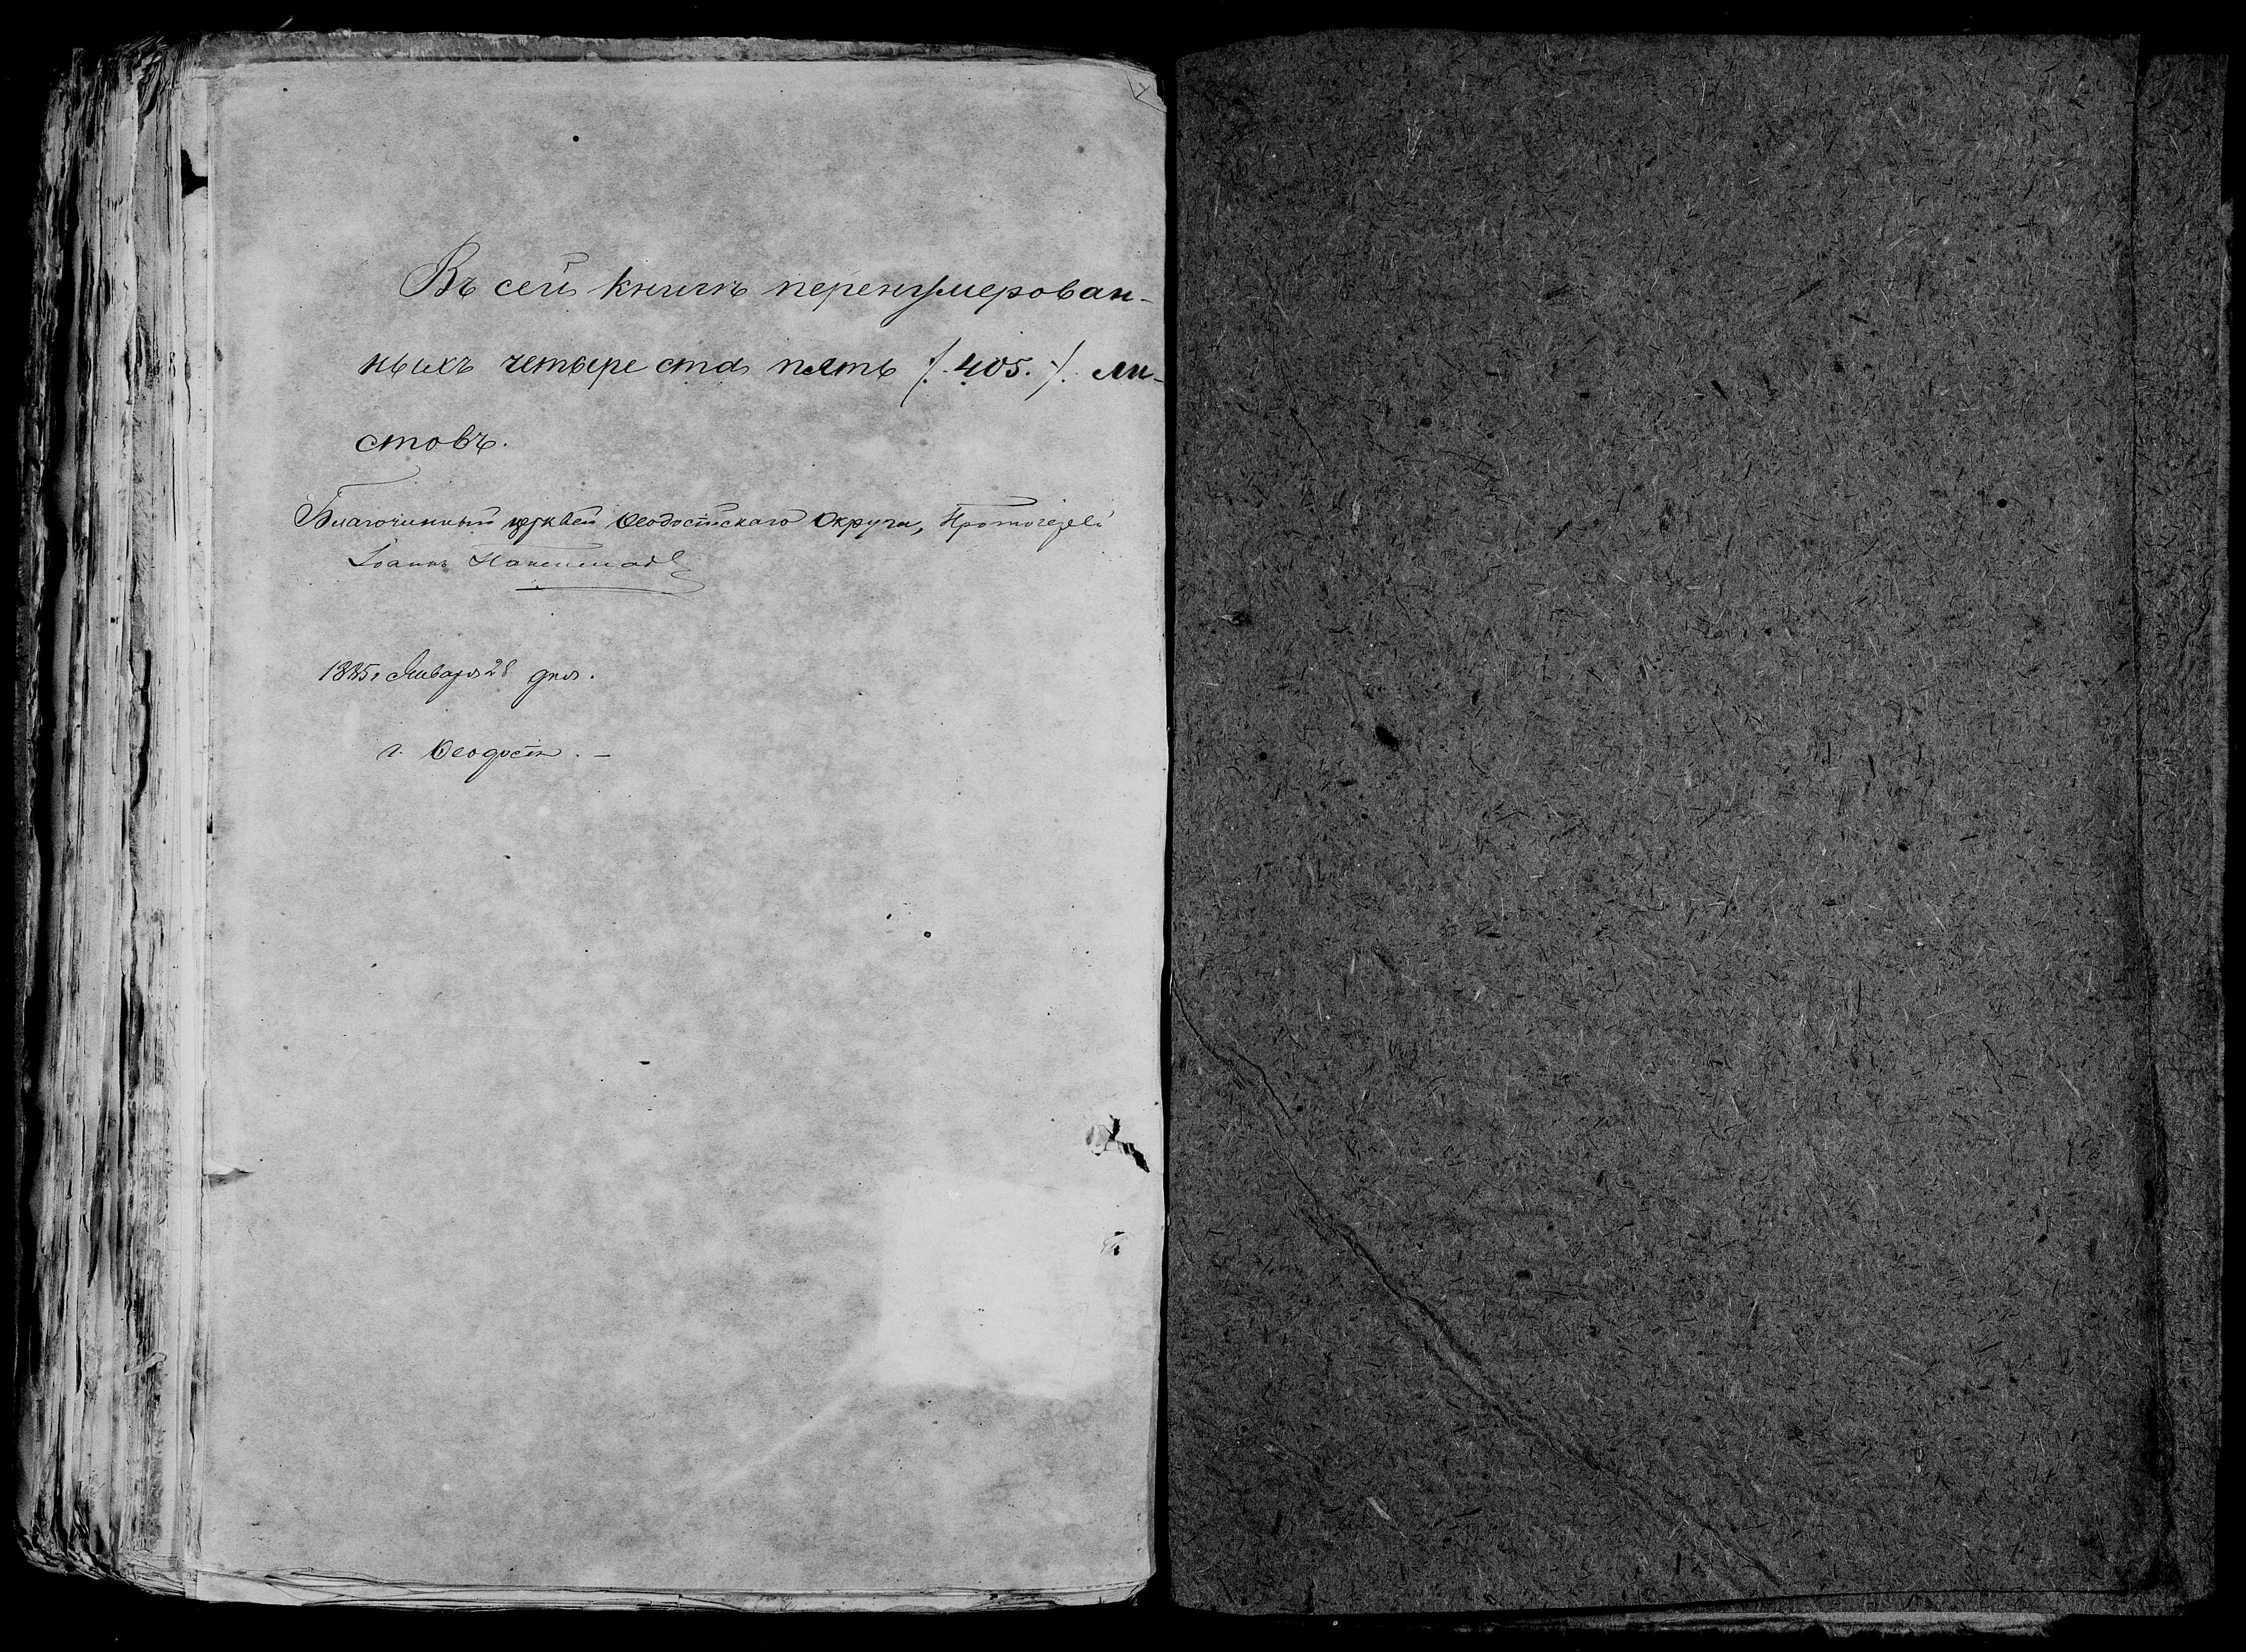 Въ сей книгѣ перенумерован-
ныхъ четыреста пять /.405./. ли-
стовъ.
Благочинный церквей Ѳеодосійскаго Округа, Протоіерей
Іоаннъ
1885, Января 28 дня.
г. Ѳеодосія. —